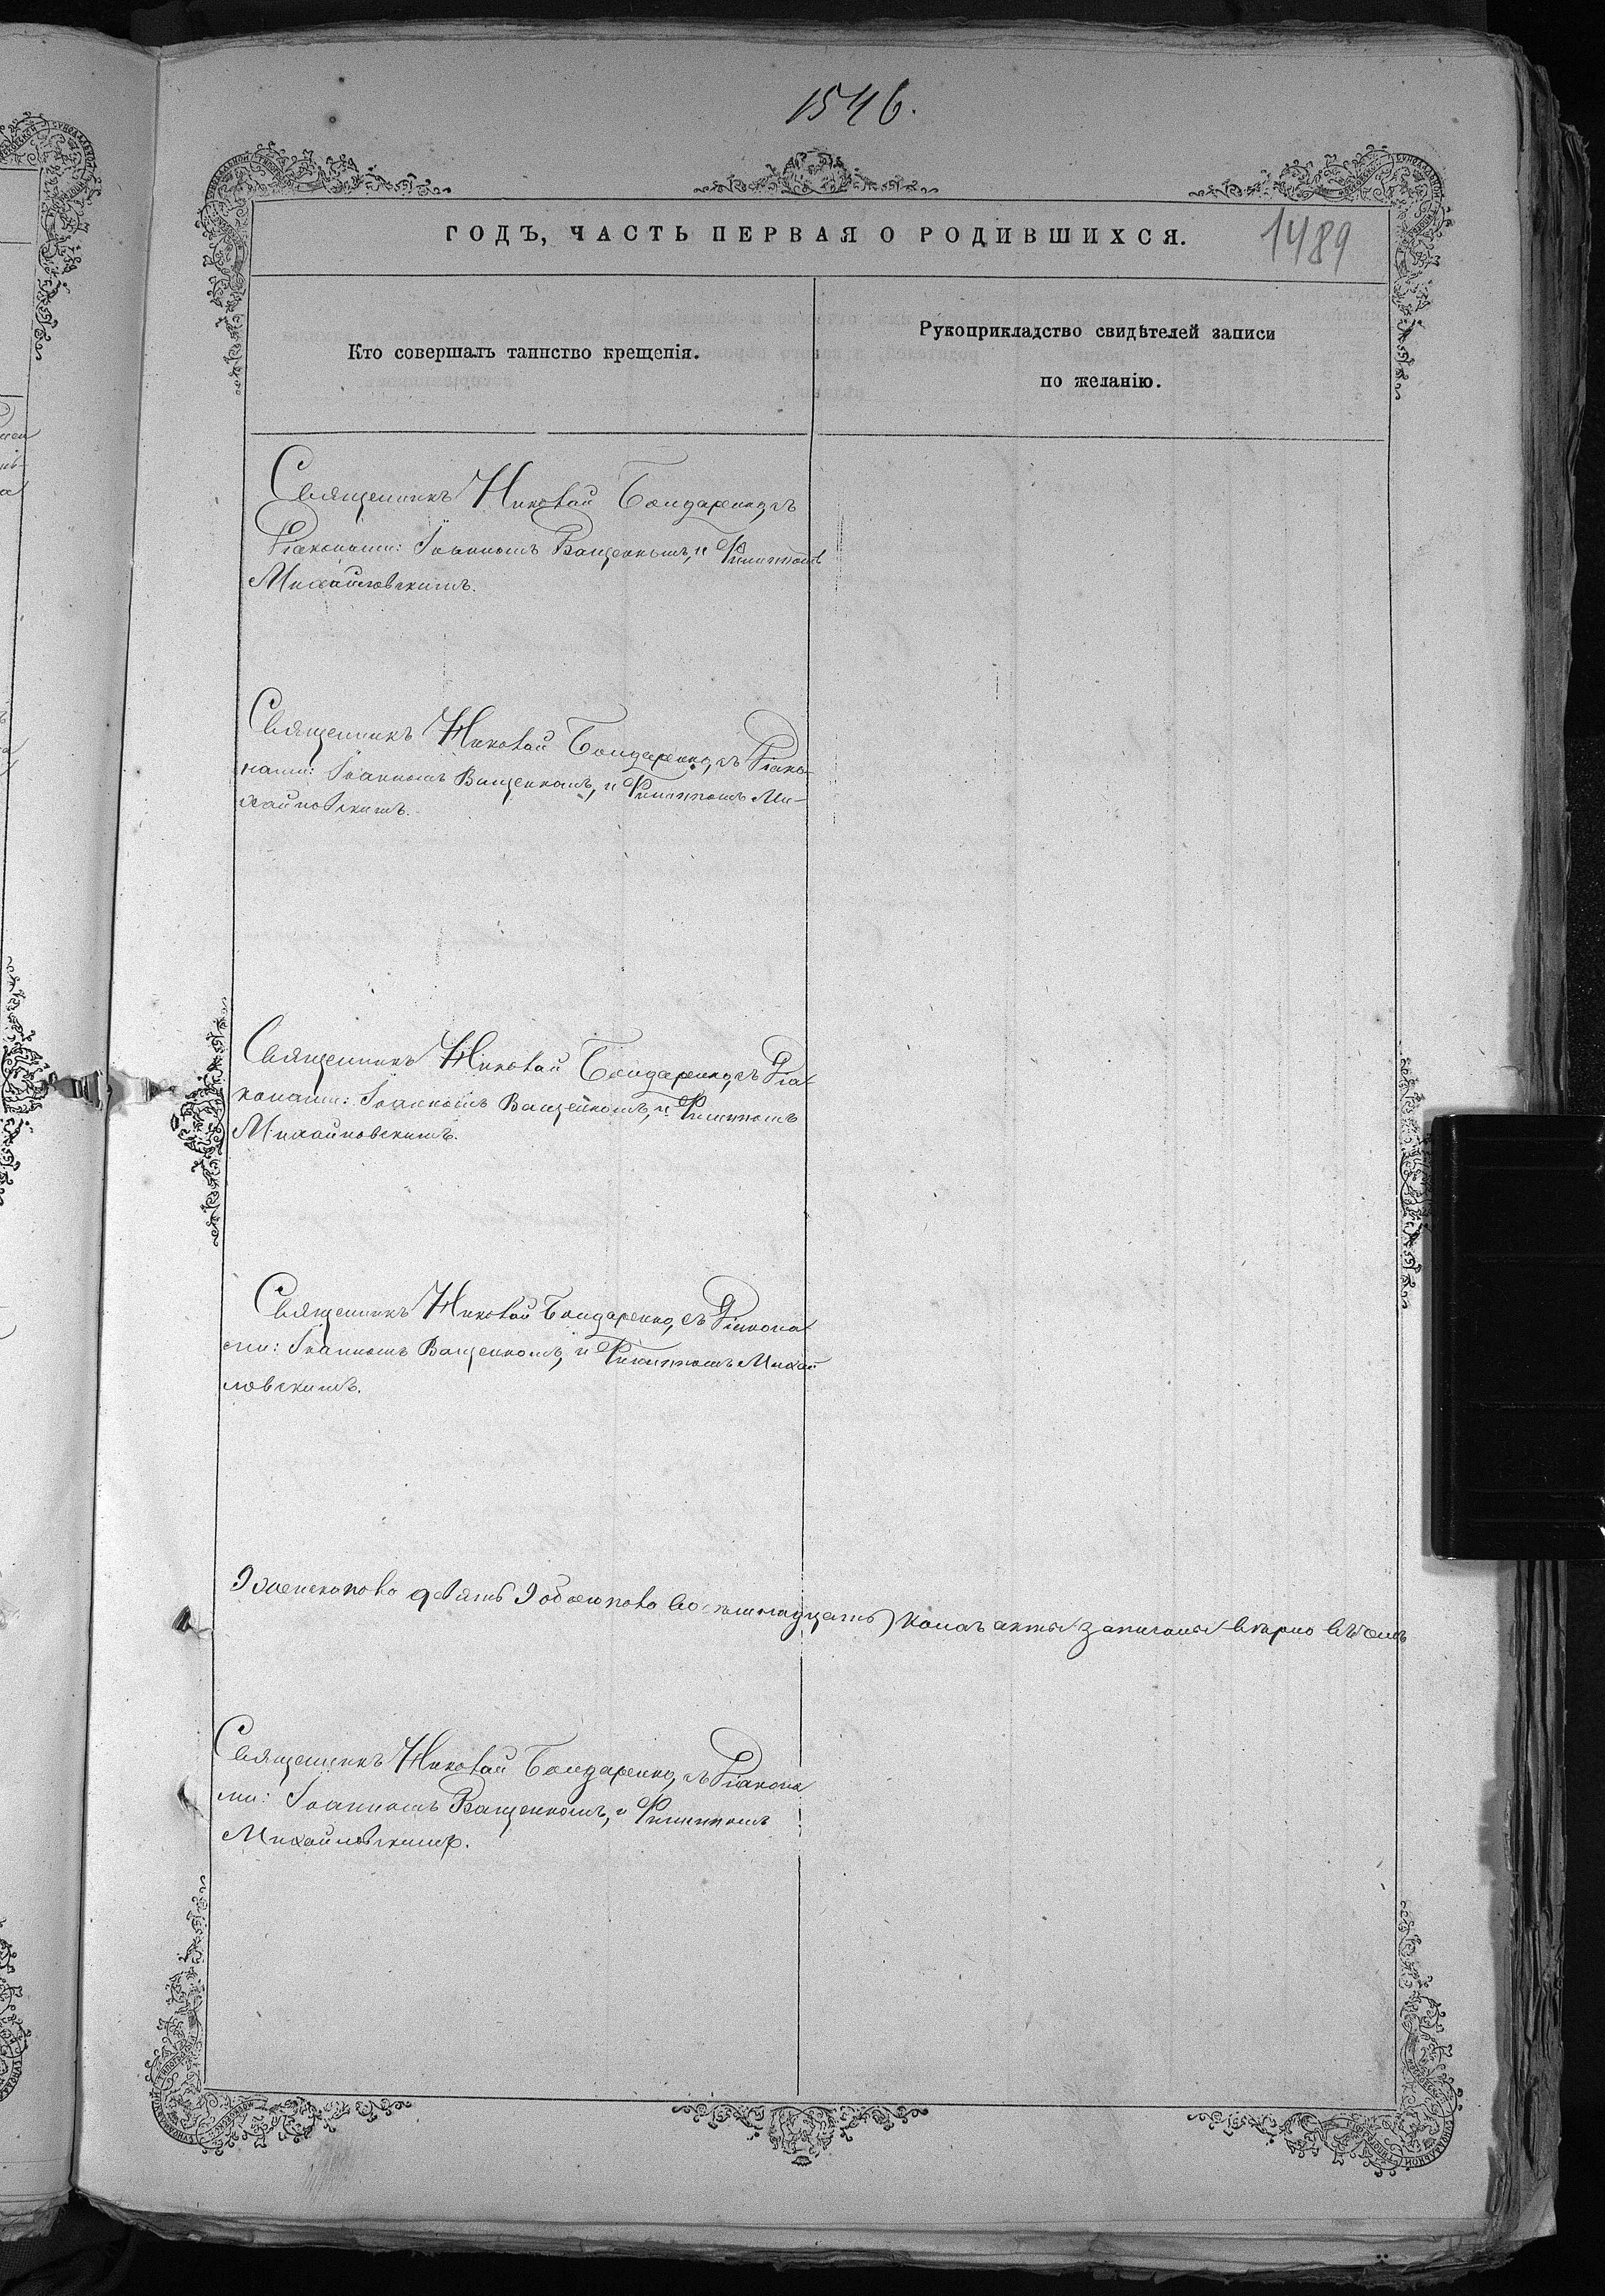 1546.
ГОДЪ, ЧАСТЬ ПЕРВАЯ О РОДИВШИХСЯ.
1489
Кто совершалъ таинство крещенія.
Рукоприкладство свидѣтелей записи
по желанію.
Священникъ Николай Бондаренко, съ
Діаконами: Іоанномъ Ващенкомъ, и Филиппомъ
Михайловскимъ.
Священникъ Николай Бондаренко, съ Діако-
нами: Іоанномъ Ващенкомъ, и Филиппомъ Ми-
хайловскимъ.
Священникъ Николай Бондаренко, съ Діа
конами: Іоанномъ Ващенкомъ, и Филиппомъ
Михайловскимъ.
Священникъ Николай Бондаренко, съ Діакона
ми: Іоанномъ Ващенкомъ, и Филиппомъ Михай
ловскимъ.
девять обоего пола восемнадцать) акты записаны вѣрно въ чемъ
Священникъ Николай Бондаренко, съ Діакона
ми: Іоанномъ Ващенкомъ, и Филиппомъ
Михайловскимъ.